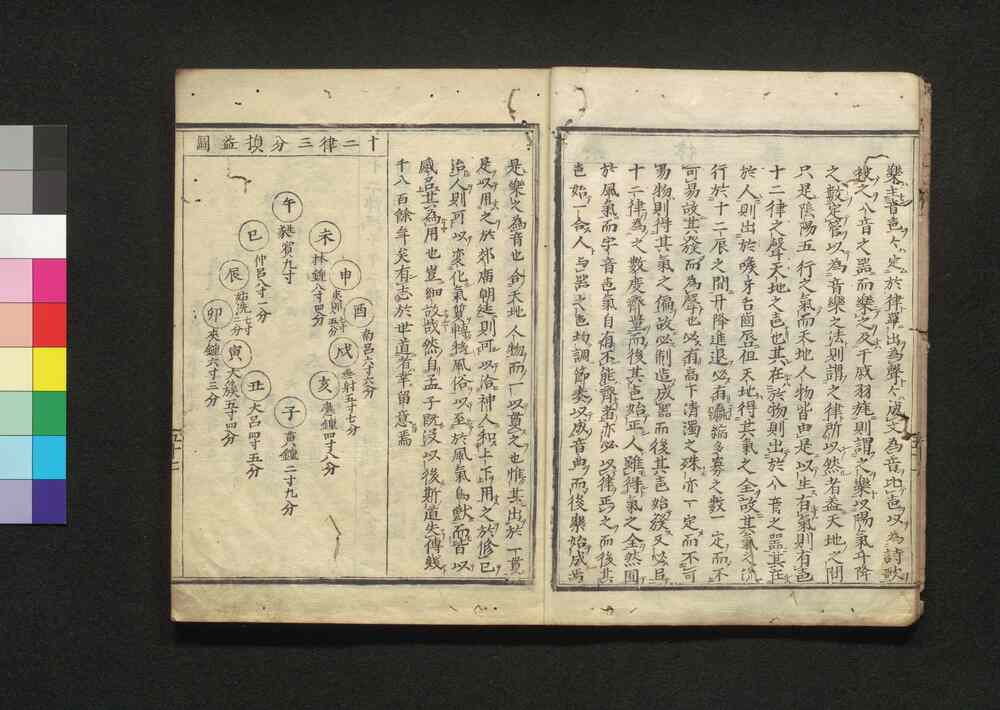 樂主音㐌々定於律單出為聲々成文為音比㐌以為詩歌
被之八音之器而樂之及干戚羽旄則謂之樂以陽氣升降
之數定管以為音樂之法則謂之律所以然者盖天地之間
只是陰陽五行之氣而天地人物皆由是以生有氣則有㐌
十二律之聲天地之㐌也其在於物則出於八音之器其在
於人則出於喉牙舌齒唇但天地得其氣之全故其氣之流
行於十二辰之間升降進退必有盈縮多寡之數一定而不
可易故其發而為聲也必有高下清濁之殊亦一定而不可
易物則得其氣之偏故必制造成器而後其㐌始發又必以
十二律為之數度齊量而後其㐌始正人雖得氣之全然囿
於風氣而字音㐌氣自有不能齊者亦必以律正之而後其
㐌始一合人与器之㐌均調節奏以成音曲而後樂始成焉
是樂之為音也合天地人物而一以貫之也惟其出於一貫
是以用之於郊廟朝廷則可以洽神人和上下用之於修己
治人則可以変化氣質轉移風俗以至於風氣鳥獸而皆以
感召其為用也豈細故哉然自孟子既没以後斯道失傳賎
千八百餘年矣有志於世道者葦留意焉
十二律三分損益圖
午 蕤賓九寸
未 林鐘八寸四分
申 夷則七寸五分
酉 南呂六寸六分
戌 無射五寸七分
亥 應鐘四寸八分
子 黄鐘三寸九分
丑 大呂四寸五分
寅 大簇五寸四分
卯 夾鐘六寸三分
辰 姑洗七寸二分
巳 仲呂八寸一分